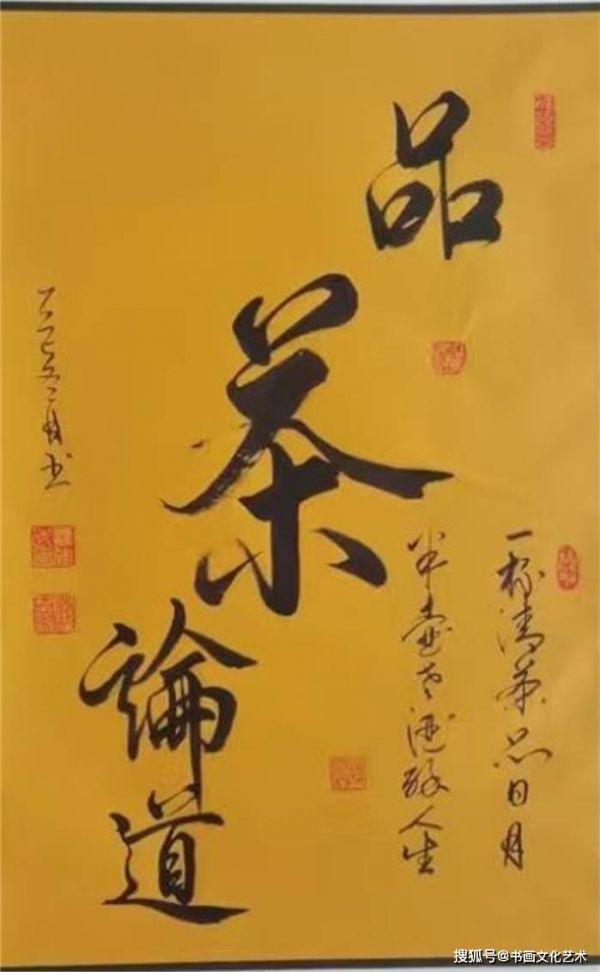 品
茶
論
道
一杯清茶品日月
半壶老酒醉人生
月书
搜狐号@书画文化艺术